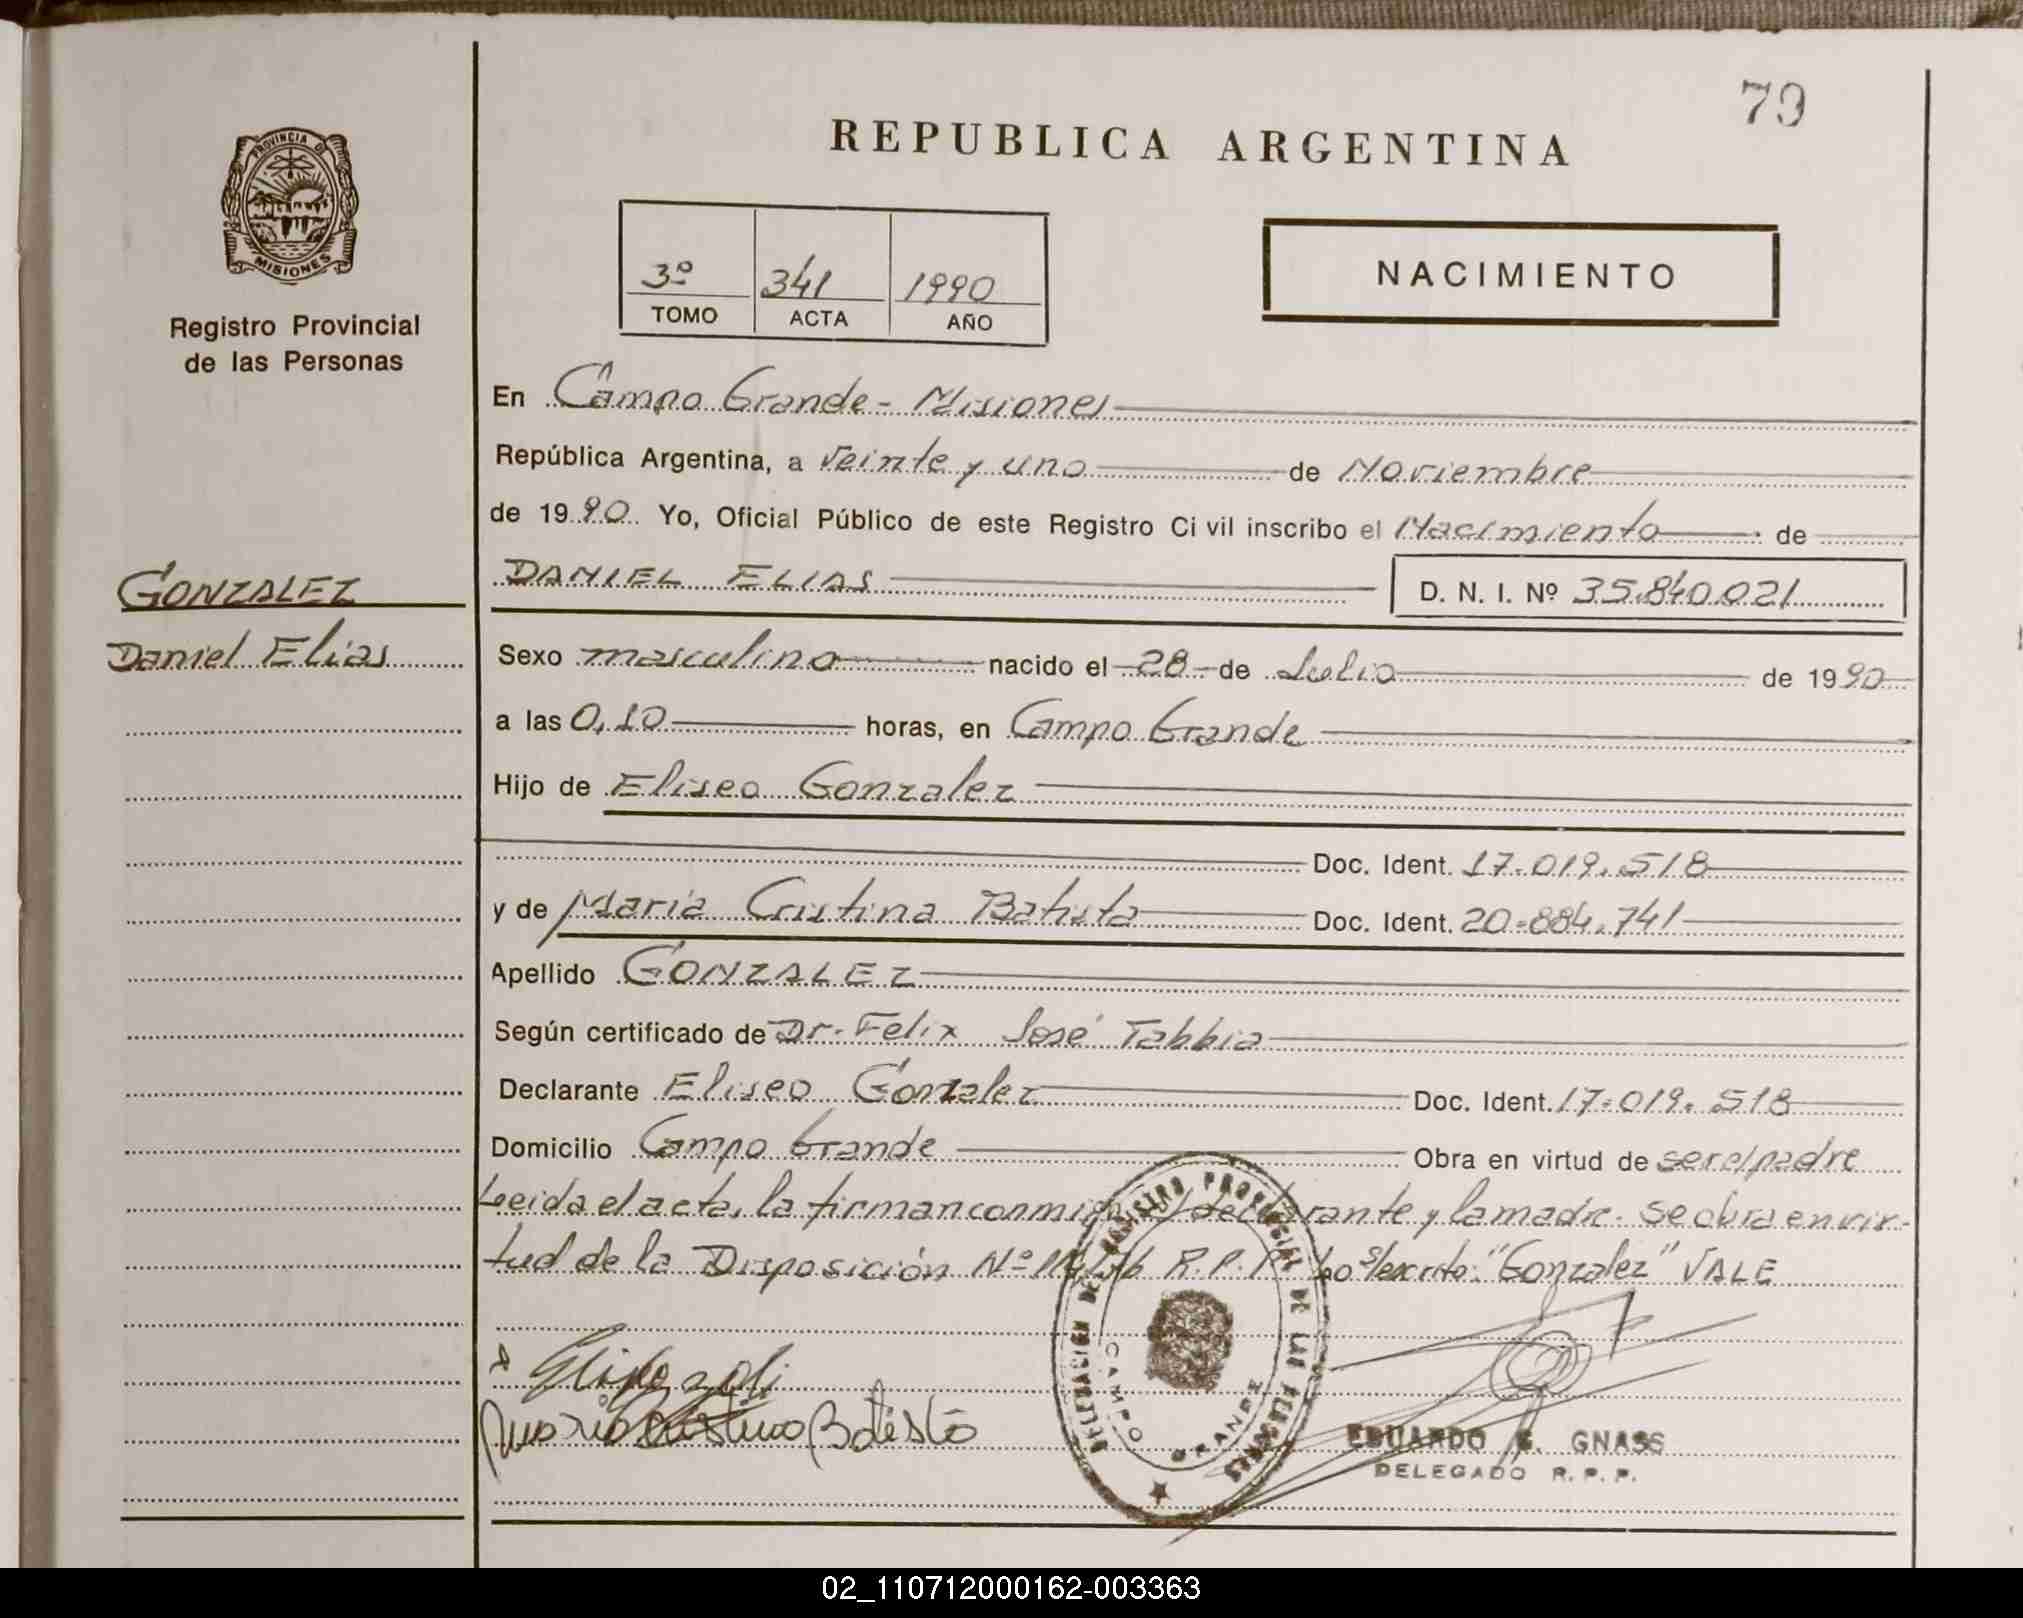 79
REPUBLICA ARGENTINA
PROVINCIA DE
MISIONES
Registro Provincial
de las Personas
3º 341 1990
TOMO ACTA AÑO
NACIMIENTO
En Campo Grande - Misiones
República Argentina, a veinte y uno de Noviembre
de 1990 Yo, Oficial Público de este Registro Ci vil inscribo el Nacimiento de
DANIEL ELIAS D. N. I. Nº 35.840.021
GONZALEZ
Daniel Elias
Sexo masculino nacido el -28- de Julio de 1990
a las 0,10 horas, en Campo Grande
Hijo de Eliseo Gonzalez
Doc. Ident. 17.019.518
y de Maria Cristina Batista Doc. Ident. 20.884.741
Apellido GONZALEZ
Según certificado de Dr. Felix José Tabbia
Declarante Eliseo Gonzalez Doc. Ident. 17.019.518
Domicilio Campo Grande Obra en virtud de ser el padre
Leida el acta, la firman conmigo el declarante y la madre. Se obra en vir-
tud de la Disposición Nº R.P.P. Lo s/escrito: "Gonzalez" VALE
DELEGACIÓN DEL REGISTRO PROVINCIAL DE LAS PERSONAS
CAMPO GRANDE
Maria Cristina Batista
EDUARDO GNASS
DELEGADO R. P. P.
02_110712000162-003363